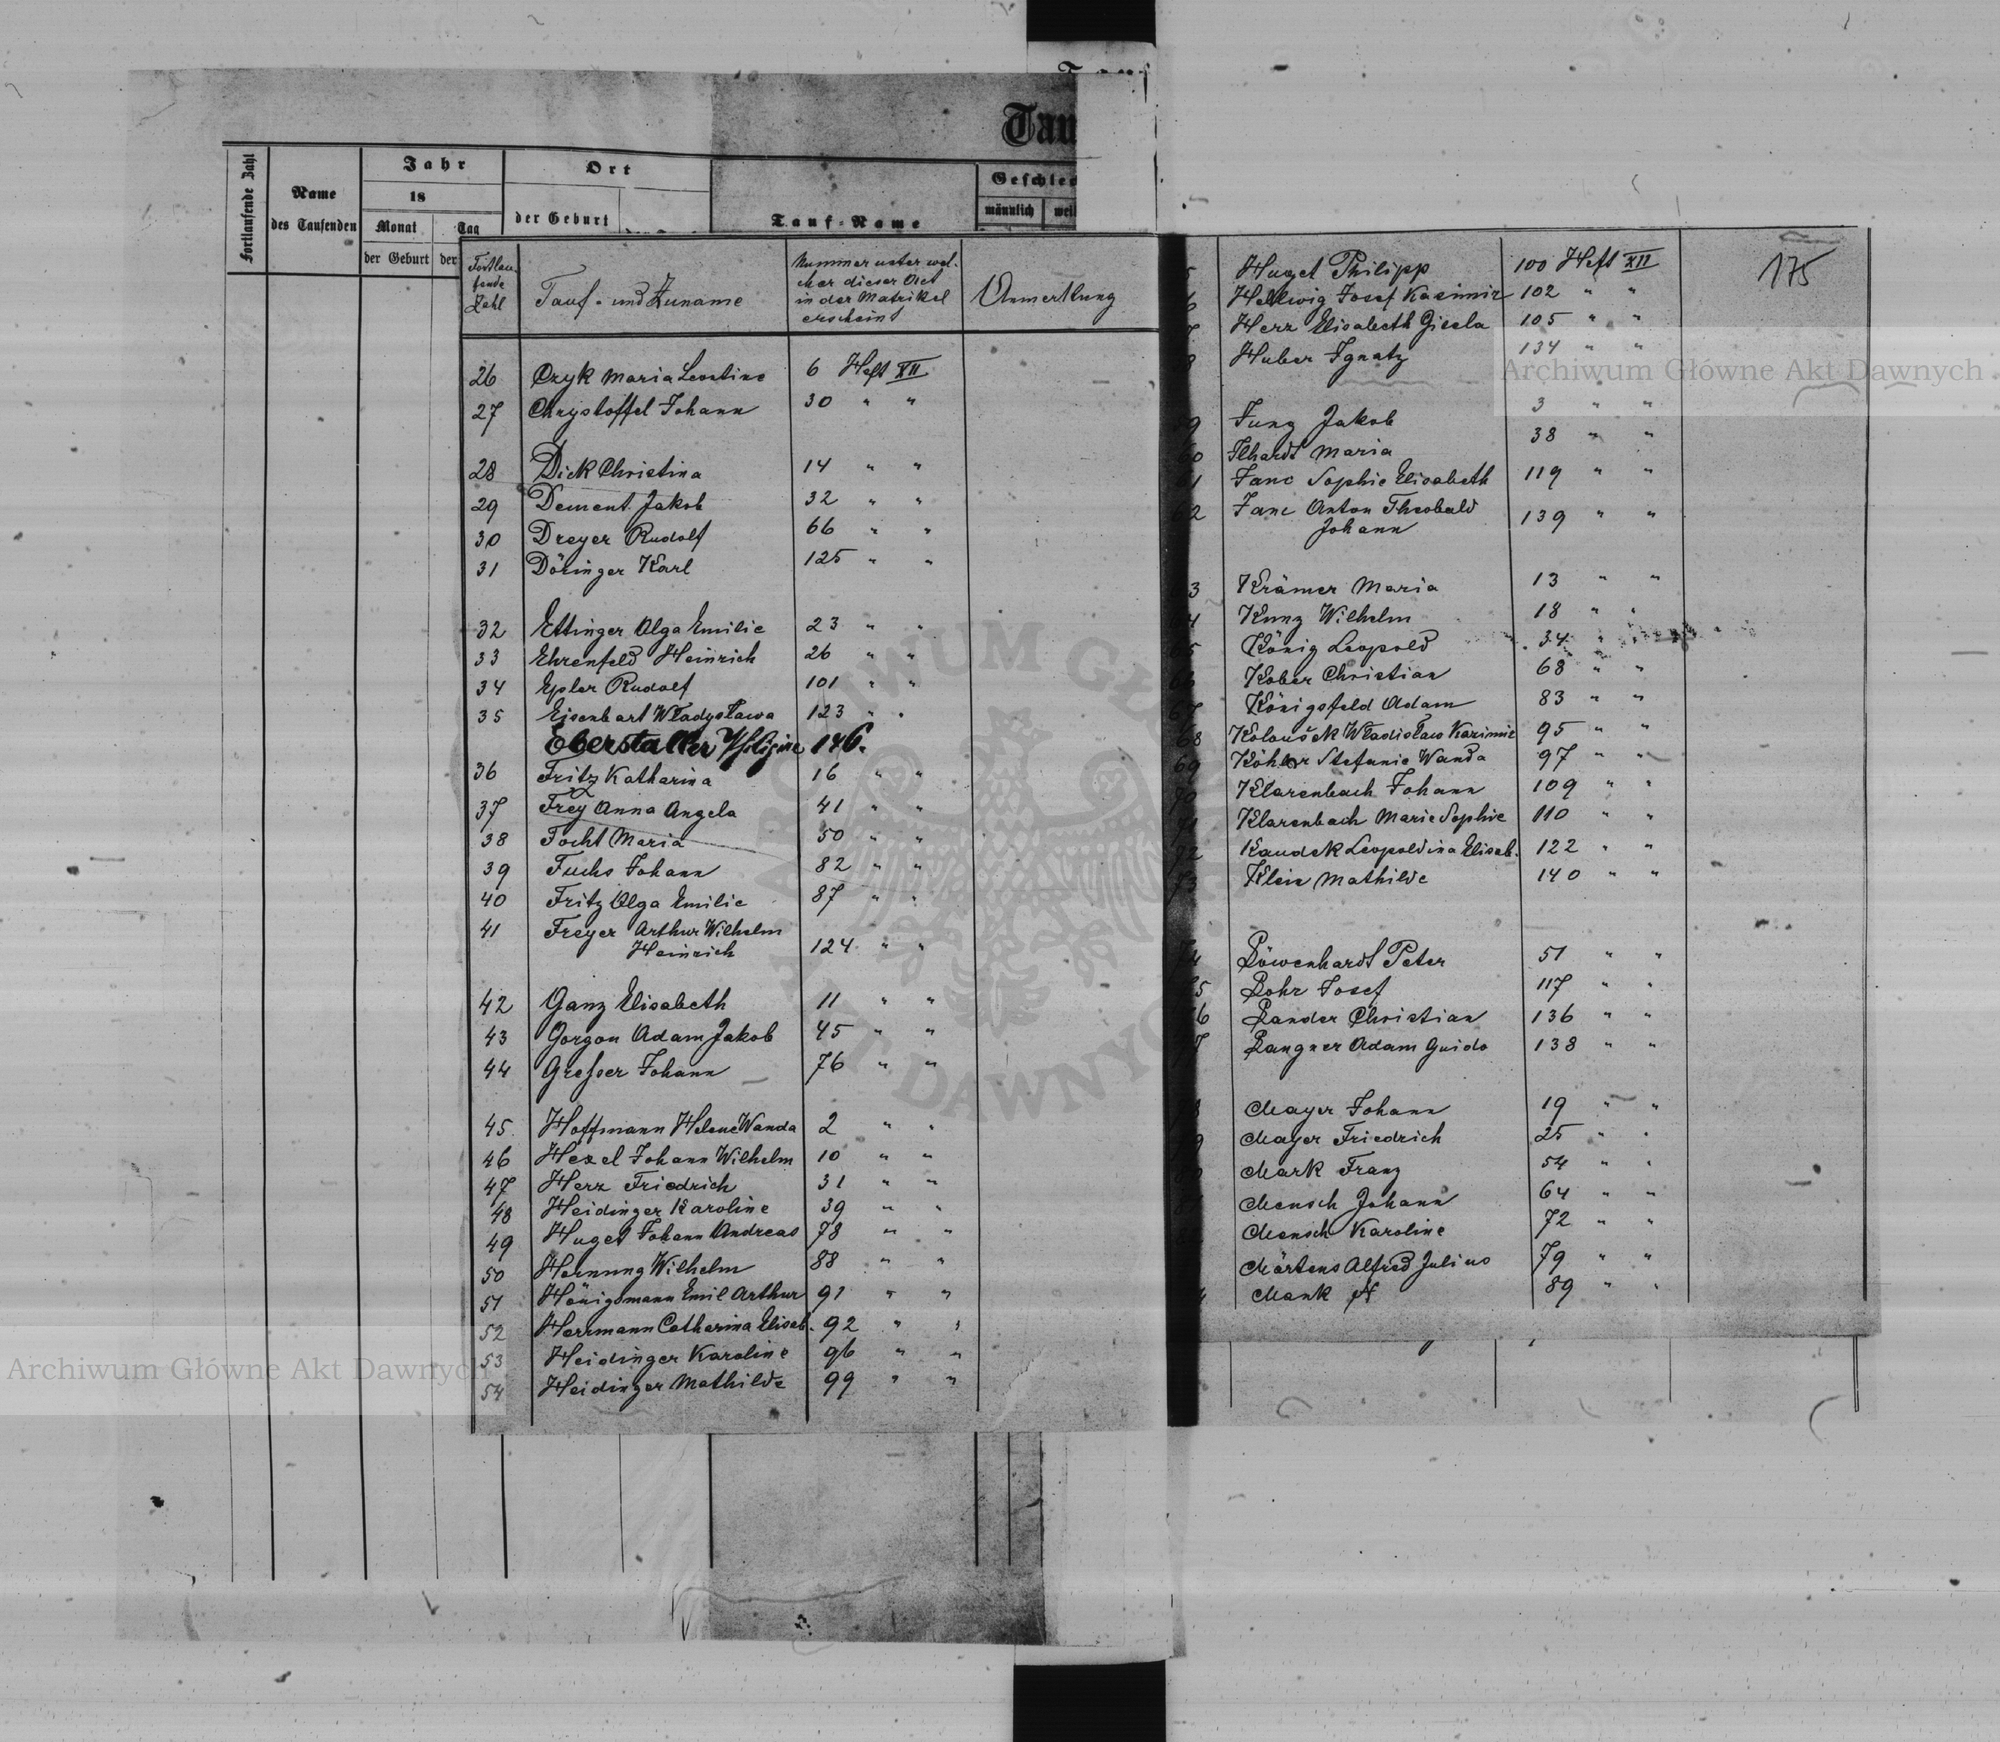 Tau
Fortlaufende Zahl
Name
des Taufenden
Jahr
18
Monat
Tag
der Geburt
der
Ort
der Geburt
Tauf-Name
Geschlec
männlich
weil
Fortlau-
fende
Zahl
Tauf- und Zuname
Nummer unter wel-
cher dieser Act
in der Matrikel
erscheint
Anmerkung
26 Czyk Maria Leontine 6 Heft XII
27 Chrystoffel Johann 30 " "
28 Dick Christina 14 " "
29 Dement Jakob 32 " "
30 Dreyer Rudolf 66 " "
31 Döringer Karl 125 " "
32 Ettinger Olga Emilie 23 " "
33 Ehrenfeld Heinrich 26 " "
34 Epler Rudolf 101 " "
35 Eisenbart Władysława 123 " "
Eberstaller 146.
36 Fritz Katharina 16 " "
37 Frey Anna Angela 41 " "
38 Focht Maria 50 " "
39 Fuchs Johann 82 " "
40 Fritz Olga Emilie 87 " "
41 Freyer Arthur Wilhelm
Heinrich 124 " "
42 Ganz Elisabeth 11 " "
43 Gorgon Adam Jakob 45 " "
44 Gresser Johann 76 " "
45 Hoffmann Helene Wanda 2 " "
46 Hexel Johann Wilhelm 10 " "
47 Herz Friedrich 31 " "
48 Heidinger Karoline 39 " "
49 Huget Johann Andreas 78 " "
50 Hornung Wilhelm 88 " "
51 Hönigsmann Emil Arthur 91 " "
52 Herrmann Catharina Elisab. 92 " "
53 Heidinger Karoline 96 " "
54 Heidinger Mathilde 99 " "
175
5 Huget Philipp 100 Heft XII
6 Hellwig Josef Kasimir 102 " "
7 Herz Elisabeth Gisela 105 " "
8 Huber Ignatz 134 " "
9 Jung Jakob 3 " "
60 Ilhardt Maria 38 " "
1 Jane Sophie Elisabeth 119 " "
62 Jane Anton Theobald
Johann 139 " "
3 Krämer Maria 13 " "
4 Kunz Wilhelm 18 " "
65 König Leopold 34 " "
66 Kober Christian 68 " "
67 Königsfeld Adam 83 " "
68 Koloušek Władisław Kazimir 95 " "
69 Köhler Stefanie Wanda 97 " "
70 Klarenbach Johann 109 " "
71 Klarenbach Marie Sophie 110 " "
72 Kaudek Leopoldina Elisab. 122 " "
73 Klein Mathilde 140 " "
4 Löwenhardt Peter 51 " "
5 Lohr Josef 117 " "
6 Lander Christian 136 " "
7 Langner Adam Guido 138 " "
8 Mayer Johann 19 " "
9 Mayer Friedrich 25 " "
Mark Franz 54 " "
Mensch Johann 64 " "
Mensch Karoline 72 " "
Märtens Alfred Julius 79 " "
4 Mank N 89 " "
Archiwum Główne Akt Dawnych
Archiwum Główne Akt Dawnych
ARCHIWUM GŁÓWNE AKT DAWNYCH